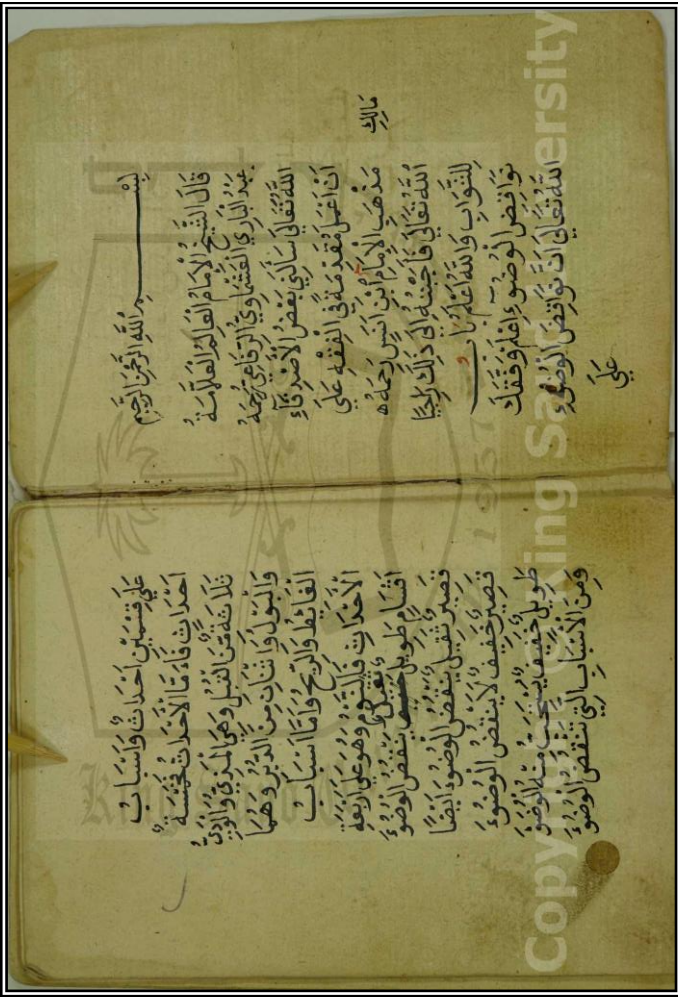 بِسْــــــمِ اللَّهِ الرَّحْمٰنِ الرَّحِيمِ
قَالَ الشَّيْخُ الْاِمَامُ الْعَالِمُ الْعَلَّامَةُ
عَبْدُ الْبَارِي الْعَشْمَاوِيُّ الرِّفَاعِيُّ رَحِمَهُ
اللَّهُ تَعَالَى سَاَلَنِي بَعْضُ الْاَصْدِقَاءِ
اَنْ اَعْمَلَ مُقَدِّمَةً فِي الْفِقْهِ عَلَى
مَذْهَبِ الْاِمَامِ ابْنِ اَنَسٍ رَحِمَهُ
مَالِكِ
اللَّهُ تَعَالَى فَاَجَبْتُهُ اِلَى ذَلِكَ رَاجِيًا
لِلثَّوَابِ وَاللَّهُ اَعْلَمُ بَابُ
نَوَاقِضِ الْوُضُوءِ اِعْلَمْ وَفَّقَكَ
اللَّهُ تَعَالَى اَنَّ نَوَاقِضَ الْوُضُوءِ
عَلَى
عَلَى قِسْمَيْنِ اَحْدَاثٌ وَاَسْبَابُ
اَحْدَاثٍ فَاَمَّا الْاَحْدَاثُ فَخَمْسَةٌ
ثَلَاثَةٌ مِنَ الْقُبُلِ وَهِيَ الْمَذْيُ وَالْوَدْيُ
وَالْبَوْلُ وَاثْنَانِ مِنَ الدُّبُرِ وَهُمَا
الْغَائِطُ وَالرِّيحُ وَاَمَّا اَسْبَابُ
الْاَحْدَاثِ فَالنَّوْمُ وَهُوَ عَلَى اَرْبَعَةِ
اَقْسَامٍ طَوِيلٌ ثَقِيلٌ يَنْقُضُ الْوُضُوءَ
قَصِيرٌ ثَقِيلٌ يَنْقُضُ الْوُضُوءَ اَيْضًا
قَصِيرٌ خَفِيفٌ لَا يَنْقُضُ الْوُضُوءَ
طَوِيلٌ خَفِيفٌ يُسْتَحَبُّ مِنْهُ الْوُضُوءُ
وَمِنَ الْاَسْبَابِ الَّتِي تَنْقُضُ الْوُضُوءَ
Copyright © King Saud University
1957